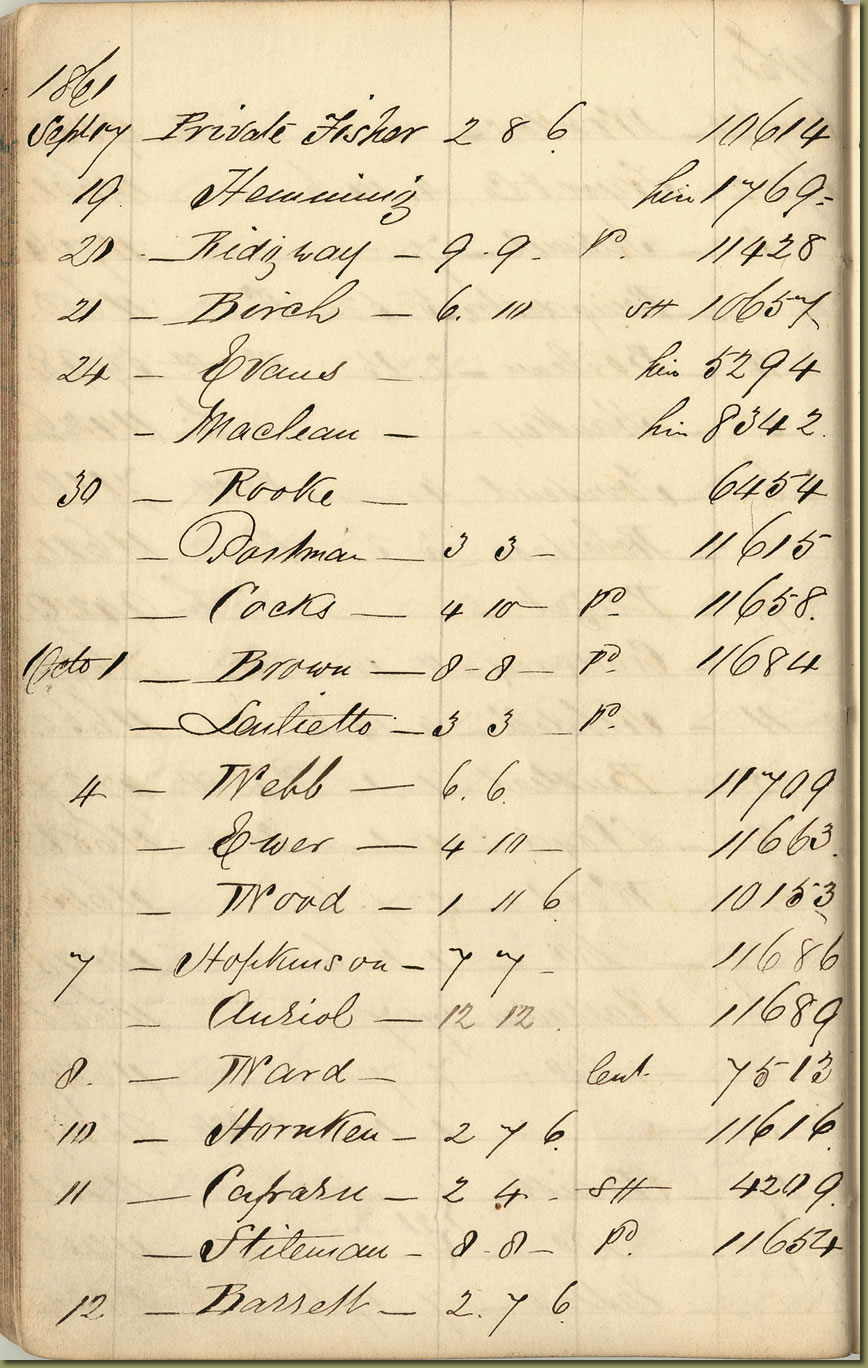 1861
Sept 17 — Private Fisher 2 8 6 10614
19 Hemming hir 1769 -
20 — Ridgway — 9 - 9 - Pd. 11428
21 — Birch — 6. 10 SH 10657
24 — Evans — hir 5294
— Maclean — hir 8342.
30 — Rooke — 6454
— Postman — 3 3 — 11615
— Cocks — 4 10 — Pd. 11658.
Octo 1 — Brown — 8 - 8 — Pd. 11684
— — 3 3 — Pd.
4 — Webb — 6. 6. 11709
— Ewer — 4 10 — 11663.
— Wood — 1 11 6. 10153
7 — Hopkinson — 7 7 - 11686
— Auriol — 12 12. 11689
8. — Ward — lent. 7513
10 — Hornken — 2 7 6. 11616.
11 — — 2 4. - SH 4209.
— Stileman - 8 - 8 — Pd. 11654
12 — Barrett — 2. 7 6.